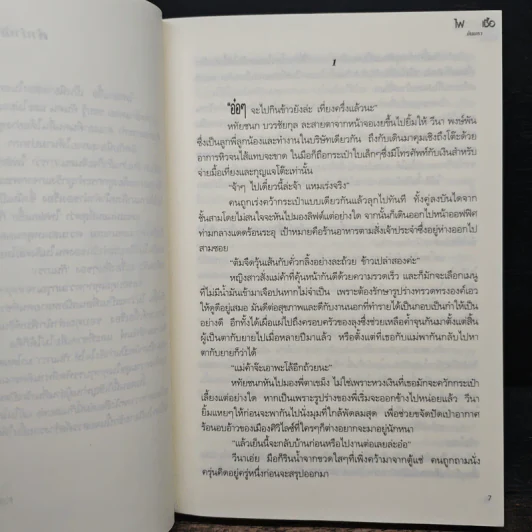 ไฟ เชื้อ
1
"อ๋อๆ จะไปกินข้าวยังล่ะ เที่ยงครึ่งแล้วนะ"
หทัยชนก บวรชัยกุล ละสายตาจากหน้าจอเงยขึ้นไปยิ้มให้ วีนา พงษ์พัน
ซึ่งเป็นลูกพี่ลูกน้องและทำงานในบริษัทเดียวกัน ถึงกับเดินมาคุมเชิงถึงโต๊ะด้วย
อาการหิวจนไส้แทบจะขาด ในมือก็ถือกระเป๋าใบเล็กๆซึ่งมีโทรศัพท์กับเงินสำหรับ
จ่ายมื้อเที่ยงและกุญแจโต๊ะเท่านั้น
"จ้าๆ ไปเดี๋ยวนี่ล่ะจ้า แหมเร่งจริง"
คนถูกเร่งคว้ากระเป๋าแบบเดียวกันแล้วลุกไปทันที ทั้งคู่ลงบันไดจาก
ชั้นสามโดยไม่สนใจจะหันไปมองลิฟต์แต่อย่างใด จากนั้นก็เดินออกไปหน้าออฟฟิศ
ท่ามกลางแดดร้อนระอุ เป้าหมายคือร้านอาหารตามสั่งเจ้าประจำซึ่งอยู่ห่างออกไป
สามซอย
"ต้มจืดวุ้นเส้นกับคั่วกลิ้งอย่างละถ้วย ข้าวเปล่าสองค่ะ"
หญิงสาวสั่งแม่ค้าที่คุ้นหน้ากันดีด้วยความรวดเร็ว และก็มักจะเลือกเมนู
ที่ไม่มีน้ำมันเข้ามาเจือปนหากไม่จำเป็น เพราะต้องรักษารูปร่างทรวดทรงองค์เอว
ให้ดูดีอยู่เสมอ มันดีต่อสุขภาพและดีกับงานนอกที่ทำรายได้เป็นกอบเป็นกำให้เป็น
อย่างดี อีกทั้งได้เผื่อแผ่ไปถึงครอบครัวของลุงซึ่งช่วยเหลือค้ำจุนกันมาตั้งแต่สิ้น
ผู้เป็นตากับยายไปเมื่อหลายปีมาแล้ว หรือตั้งแต่ที่เธอกับแม่พากันกลับไปหา
ตากับยายก็ว่าได้
"แม่ค้าจ๊ะเอาพะโล้อีกถ้วยนะ"
หทัยชนกหันไปมองพี่ตาเขม็ง ไม่ใช่เพราะหวงเงินที่เธอมักจะควักกระเป๋า
เลี้ยงแต่อย่างใด หากเป็นเพราะรูปร่างของพี่เริ่มจะออกข้างไปหน่อยแล้ว วีนา
ยิ้มแหยๆให้ก่อนจะพากันไปนั่งมุมที่ใกล้พัดลมสุด เพื่อช่วยขจัดปัดเป่าอากาศ
ร้อนอบอ้าวของเมืองศิวิไลซ์ที่ใครๆก็ต่างอยากจะมาอยู่นักหนา
"แล้วเย็นนี้จะกลับบ้านก่อนหรือไปงานต่อเลยล่ะอ๋อ"
วีนาเอ่ย มือก็รินน้ำจากขวดใสๆที่เพิ่งคว้ามาจากตู้แช่ คนถูกถามนั่ง
ครุ่นคิดอยู่ครู่หนึ่งก่อนจะสรุปออกมา
7